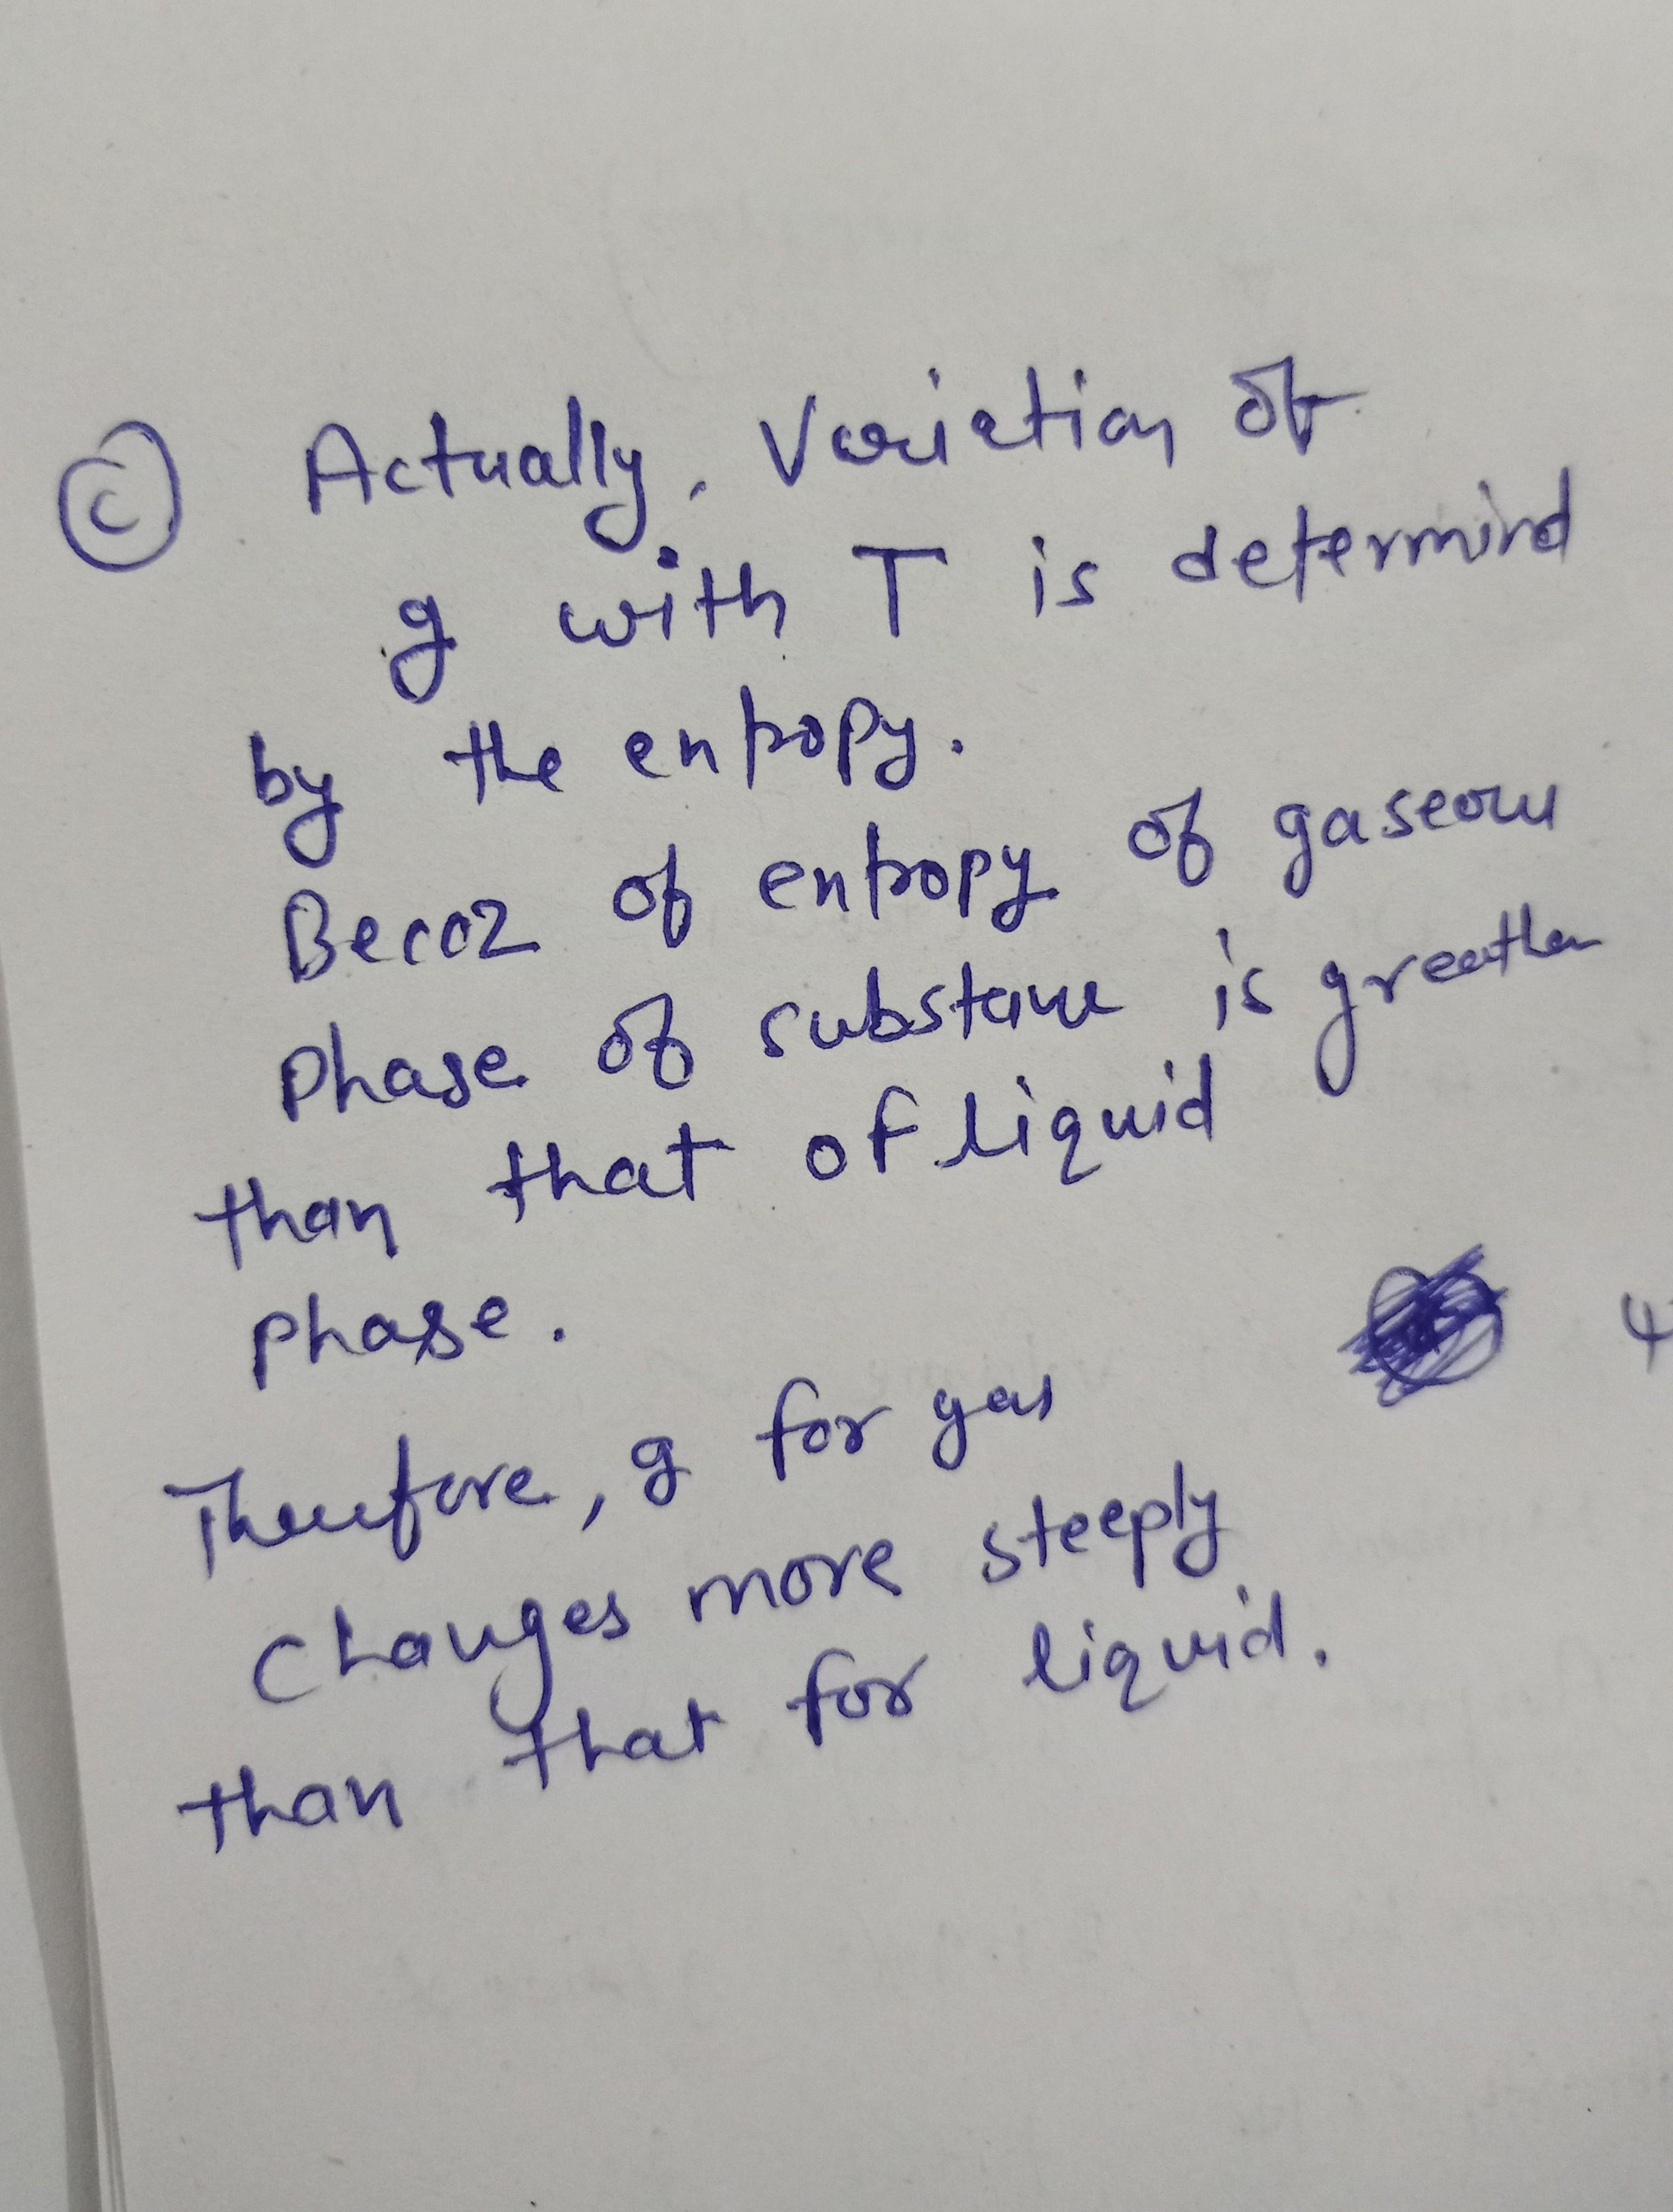 (C) Actually, Variation of
g with T is determind
by the entropy.
Becoz of entropy of gaseous
phase of substance is greather
than that of liquid
phase.
Therefore, g for gas
changes more steeply
than that for liquid.